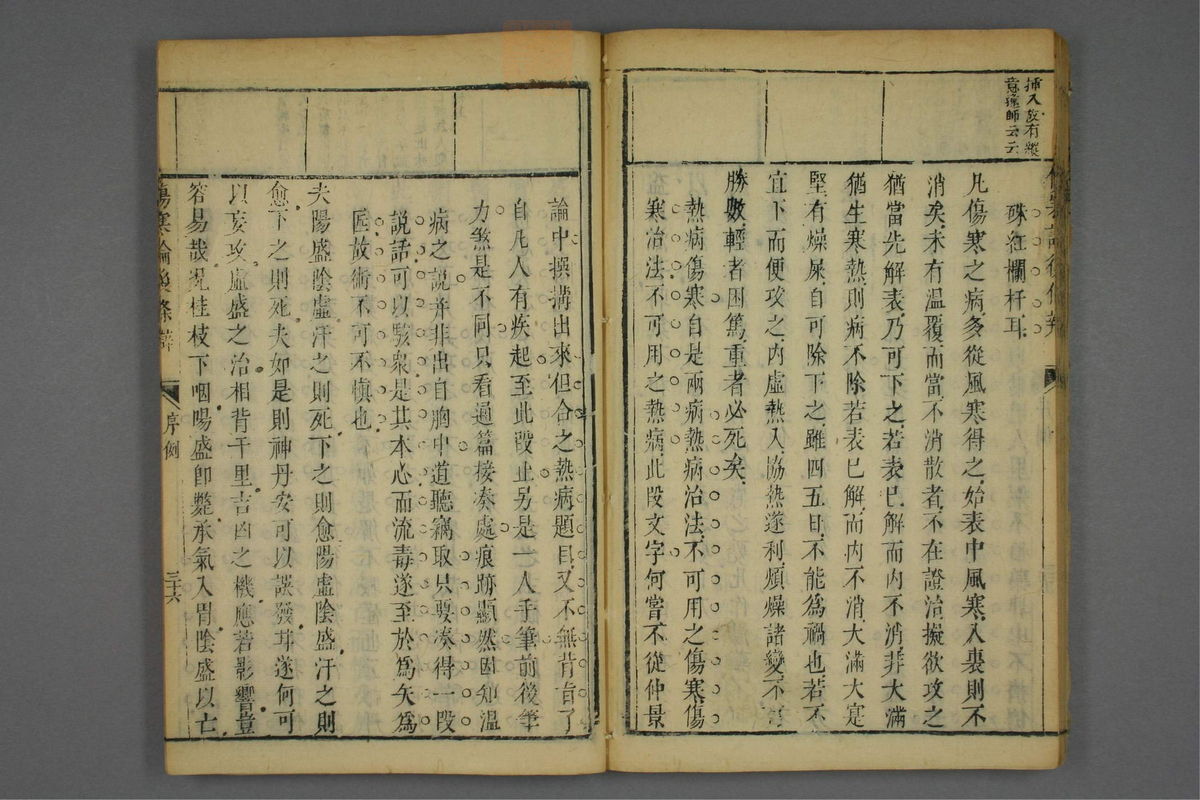 插入故有縱
意殫師云云
硃紅欄杆耳
凡傷寒之病多從風寒得之始表中風寒入裏則不
消矣未有溫覆而當不消散者不在證治擬欲攻之
猶當先解表乃可下之若表已解而內不消非大滿
猶生寒熱則病不除若表已解而內不消大滿大寔
堅有燥屎自可除下之雖四五日不能為禍也若不
宜下而便攻之內虛熱入協熱遂利煩燥諸變不可
勝數輕者困篤重者必死矣
熱病傷寒自是兩病熱病治法不可用之傷寒傷
寒治法不可用之熱病此段文字何嘗不從仲景
論中撰搆出來但合之熱病題目又不無背旨了
自凡人有疾起至此段止另是一人手筆前後筆
力煞是不同只看過篇接湊處痕跡顯然固知溫
病之說并非出自胸中道聽竊取只要湊得一段
說話可以駭衆是其本心而流毒遂至於為矢為
匠故術不可不慎也
夫陽盛陰虛汗之則死下之則愈陽虛陰盛汗之則
愈下之則死夫如是則神丹安可以誤發甘遂何可
以妄攻虛盛之治相背千里吉凶之機應若影響豈
容易哉況桂枝下咽陽盛即斃承氣入胃陰盛以亡
傷寒論後條辯
序例
三十六